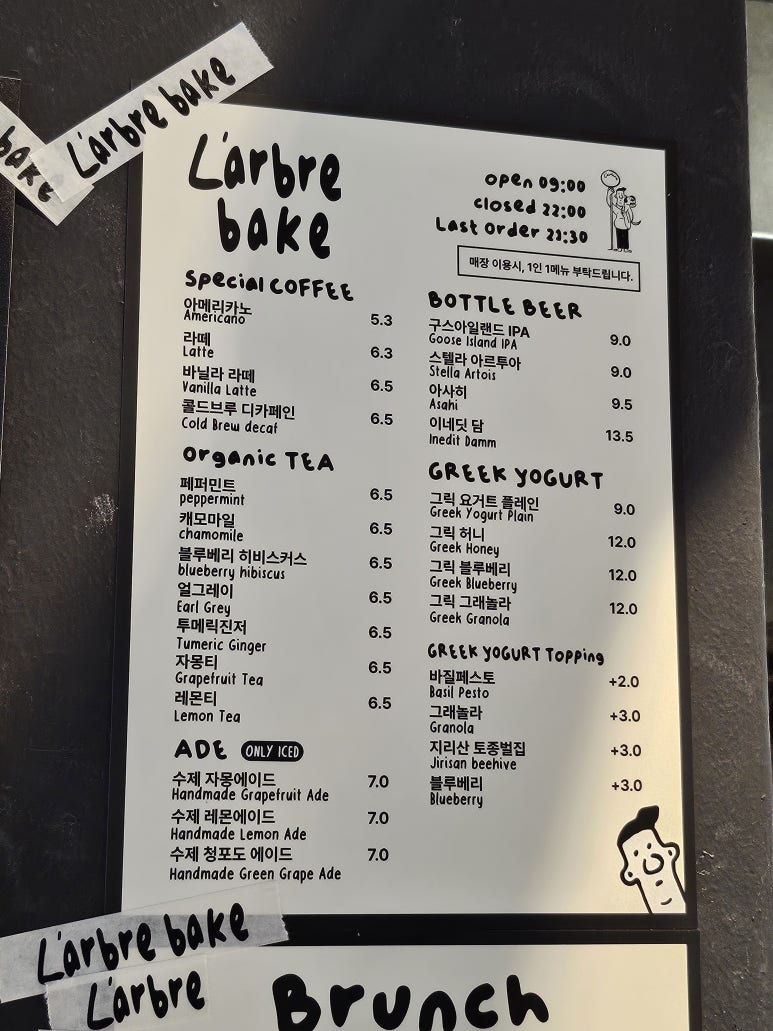 L'arbre bake
bake
L'arbre
bake
open 09:00
closed 22:00
Last order 21:30
매장 이용시, 1인 1메뉴 부탁드립니다.
Special COFFEE
아메리카노
Americano 5.3
라떼
Latte 6.3
바닐라 라떼
Vanilla Latte 6.5
콜드브루 디카페인
Cold Brew decaf 6.5
Organic TEA
페퍼민트
peppermint 6.5
캐모마일
chamomile 6.5
블루베리 히비스커스
blueberry hibiscus 6.5
얼그레이
Earl Grey 6.5
투메릭진저
Tumeric Ginger 6.5
자몽티
Grapefruit Tea 6.5
레몬티
Lemon Tea 6.5
ADE ONLY ICED
수제 자몽에이드 7.0
Handmade Grapefruit Ade
수제 레몬에이드 7.0
Handmade Lemon Ade
수제 청포도 에이드 7.0
Handmade Green Grape Ade
BOTTLE BEER
구스아일랜드 IPA
Goose Island IPA 9.0
스텔라 아르투아
Stella Artois 9.0
아사히
Asahi 9.5
이네딧 담
Inedit Damm 13.5
GREEK YOGURT
그릭 요거트 플레인
Greek Yogurt Plain 9.0
그릭 허니
Greek Honey 12.0
그릭 블루베리
Greek Blueberry 12.0
그릭 그래놀라
Greek Granola 12.0
GREEK YOGURT Topping
바질페스토
Basil Pesto +2.0
그래놀라
Granola +3.0
지리산 토종벌집
Jirisan beehive +3.0
블루베리
Blueberry +3.0
L'arbre bake
L'arbre
Brunch